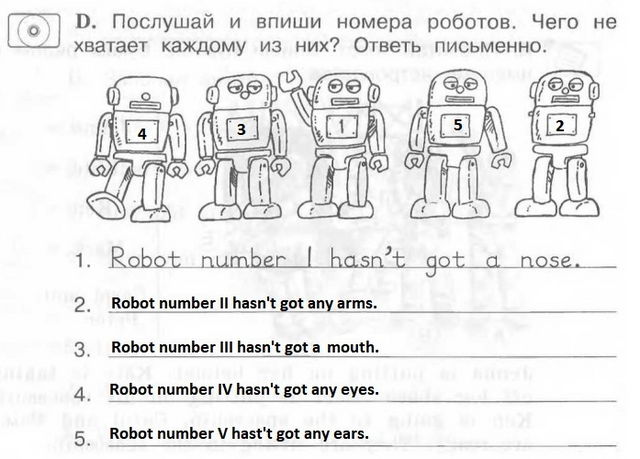 D. Послушай и впиши номера роботов. Чего не
хватает каждому из них? Ответь письменно.
4 3 1 5 2
1. Robot number 1 hasn't got a nose.
2. Robot number II hasn't got any arms.
3. Robot number III hasn't got a mouth.
4. Robot number IV hasn't got any eyes.
5. Robot number V hast't got any ears.